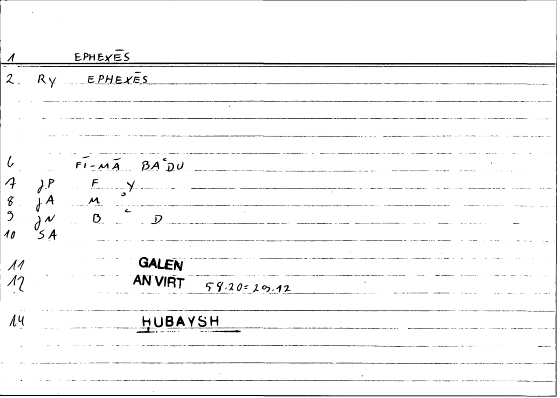 1 EPHEXĒS
2. Ry EPHEXĒS
6 FĪ-MĀ BAʿDU
7 JP F Y
8 JA M ʾ
9 JN B ʿ D
10 SA
11 GALEN
12 AN VIRT 58.20=29.12
14 HUBAYSH